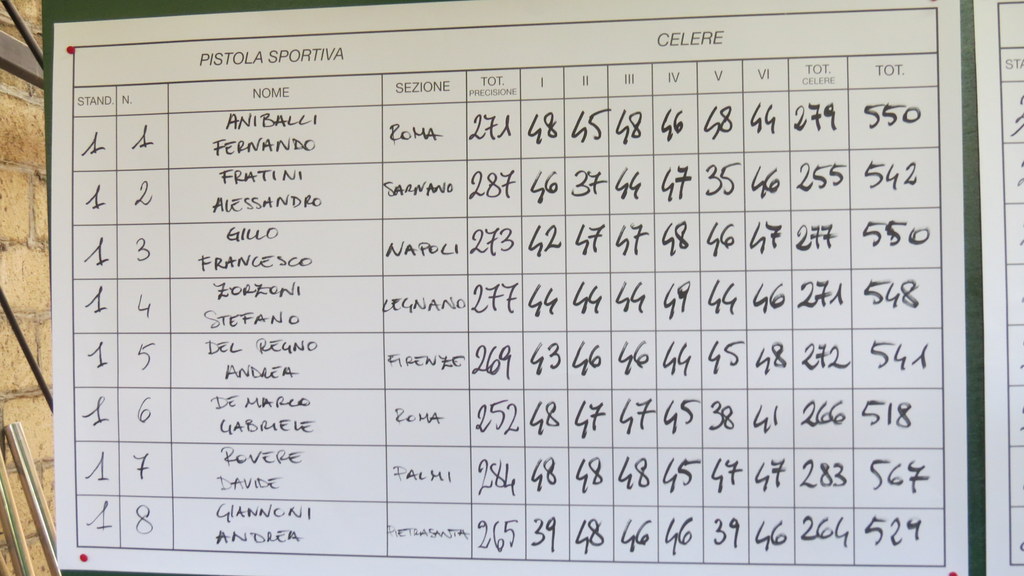 PISTOLA SPORTIVA CELERE
STAND. N. NOME SEZIONE TOT. PRECISIONE I II III IV V VI TOT. CELERE TOT.
1 1 ANIBALLI FERNANDO ROMA 271 48 45 48 46 48 44 279 550
1 2 FRATINI ALESSANDRO SARNANO 287 46 37 44 47 35 46 255 542
1 3 GILLO FRANCESCO NAPOLI 273 42 47 47 48 46 47 277 550
1 4 ZORZONI STEFANO LEGNANO 277 44 44 44 49 44 46 271 548
1 5 DEL REGNO ANDREA FIRENZE 269 43 46 46 44 45 48 272 541
1 6 DE MARCO GABRIELE ROMA 252 48 47 47 45 38 41 266 518
1 7 ROVERE DAVIDE PALMI 284 48 48 48 45 47 47 283 567
1 8 GIANNONI ANDREA PIETRASANTA 265 39 48 46 46 39 46 264 529